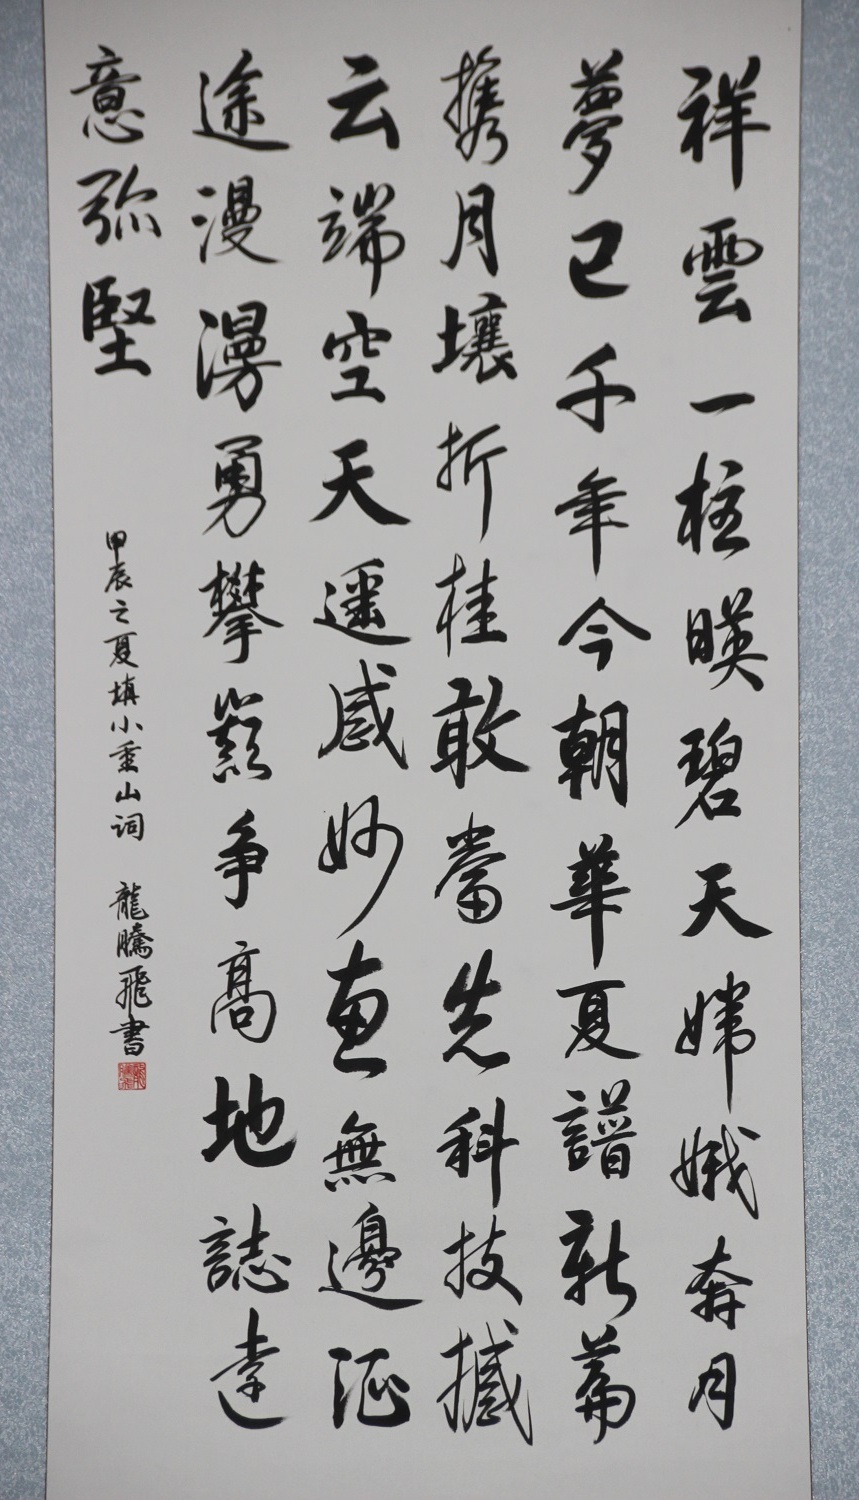 祥雲一柱暎碧天嫦娥奔月
夢已千年今朝華夏譜新篇
携月壤折桂敢當先科技撼
云端空天遥感妙画無邊征
途漫漫勇攀巔争高地誌遠
意弥堅
甲辰之夏填小重山词 龍騰飛書